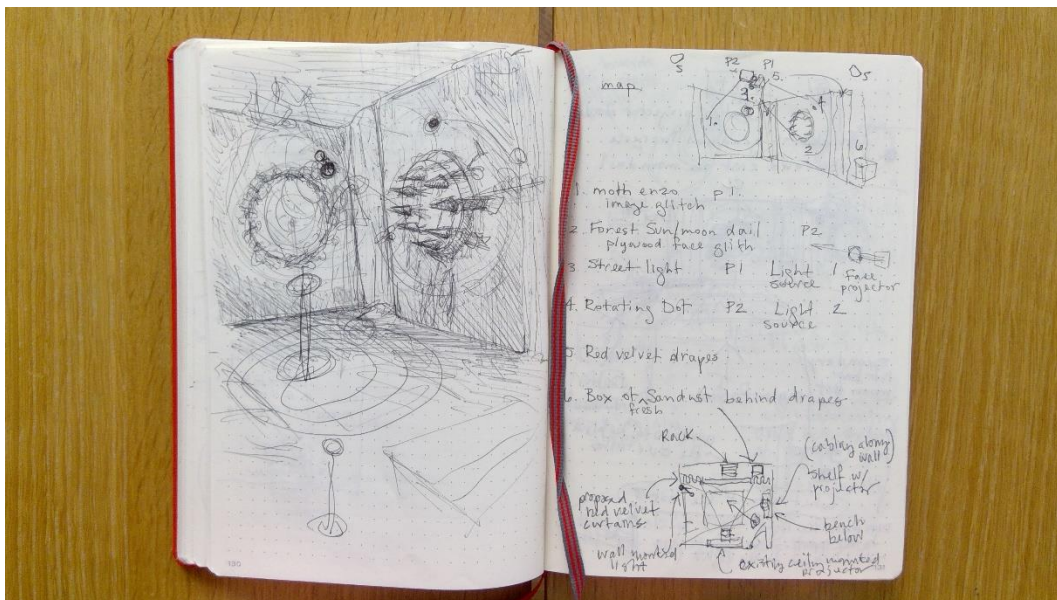 P2 P1
5 5. 5
map
3.
1. 4
2
6
1. moth enzo p1.
image glitch
2 Forest Sun/moon dail P2
plywood face glith
3 Street light P1 Light 1
source
Face
projector
4. Rotating Dot P2 Light 2
source
5 Red velvet drapes.
6. Box of Sandust behind drapes
fresh
Rack
(cabling along
wall)
shelf w/
projector
proposed
red velvet
curtains
bench
below
wall monted
light
existing ceiling mounted
projector
130